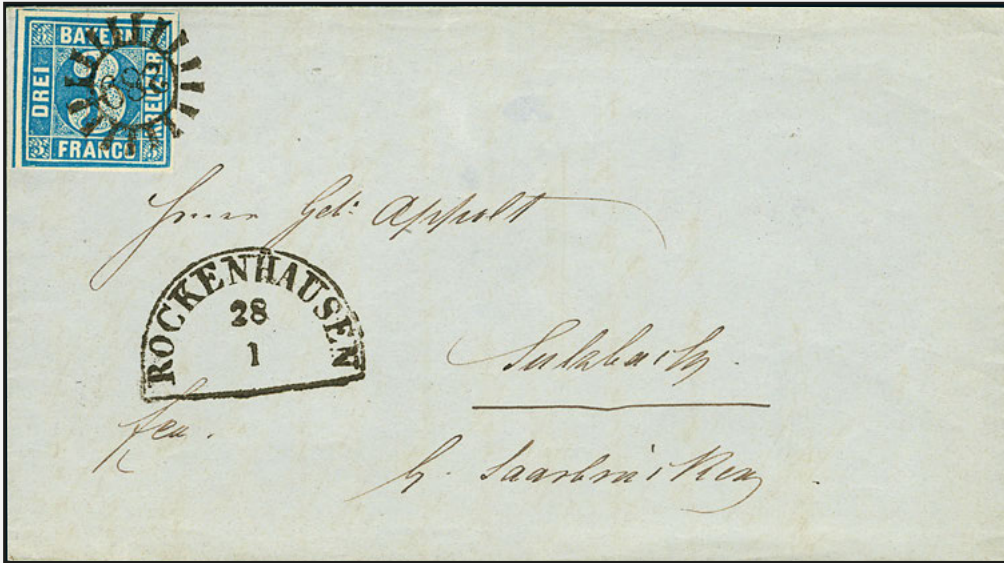 BAYERN
DREI
KREUZER
FRANCO
Herren Geb: Appolt
ROCKENHAUSEN
28
1
Sulzbach.
fco.
b. Saarbrücken